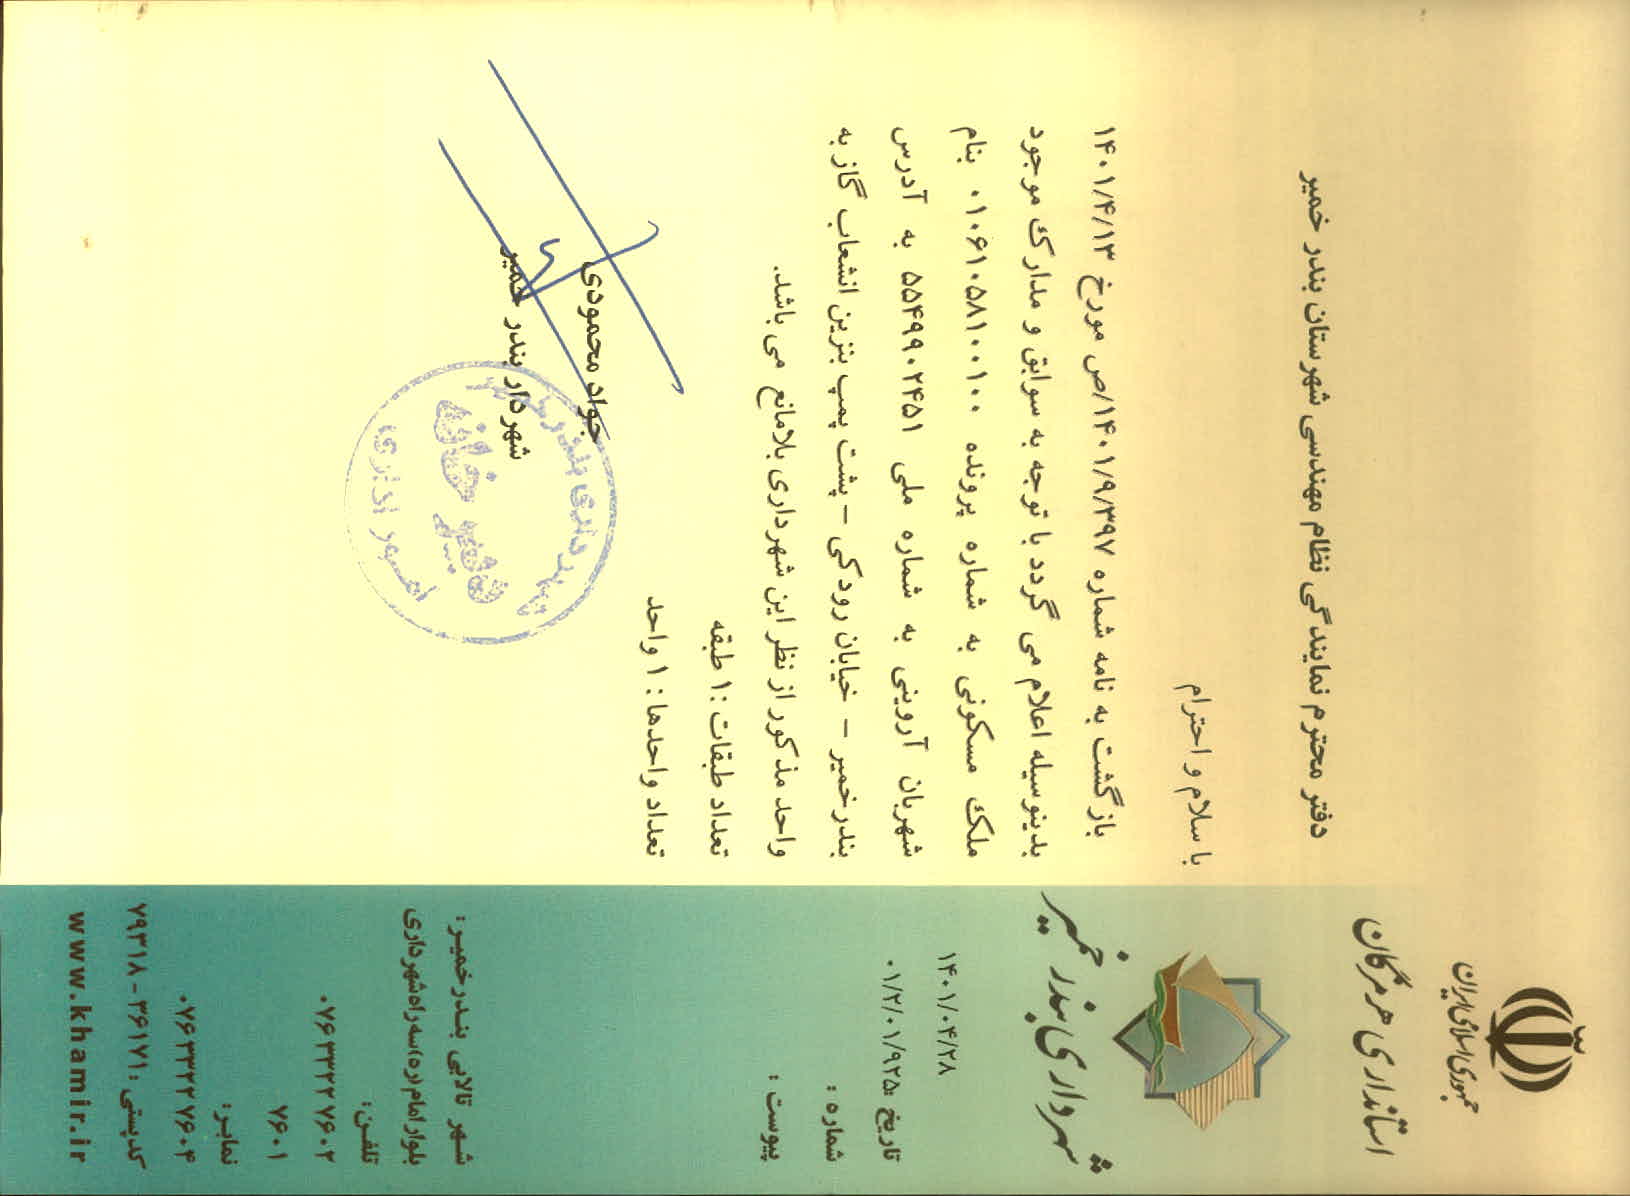 جمهوری اسلامی ایران
استانداری هرمزگان
شهرداری بندر خمیر
۱۴۰۱/۰۴/۲۸
تاریخ ۰۱/۲/۰۱/۹۲۵:
شماره :
پیوست :
شهر تالابی بندرخمیر:
بلوار امام(ره)سه راه شهرداری
تلفن:
۰۷۶۳۳۲۲۷۶۰۲
۷۶۰۱
نمابر:
۰۷۶۳۳۲۲۷۶۰۴
کدپستی : ۳۶۱۷۱ - ۷۹۳۱۸
www.khamir.ir
دفتر محترم نمایندگی نظام مهندسی شهرستان بندر خمیر
با سلام و احترام
بازگشت به نامه شماره ۱۴۰۱/۹/۳۹۷/ص مورخ ۱۴۰۱/۴/۱۳
بدینوسیله اعلام می گردد با توجه به سوابق و مدارک موجود
ملک مسکونی به شماره پرونده ۰۱۰۶۱۰۵۸۱۰۰۱۰۰ بنام
شهربان آروینی به شماره ملی ۵۵۴۹۹۰۲۴۵۱ به آدرس
بندرخمیر – خیابان رودکی – پشت پمپ بنزین انشعاب گاز به
واحد مذکور از نظر این شهرداری بلامانع می باشد.
تعداد طبقات :۱ طبقه
تعداد واحدها: ۱ واحد
جواد محمودی
شهردار بندر خمیر
شهرداری بندر خمیر
دبیرخانه
امور اداری